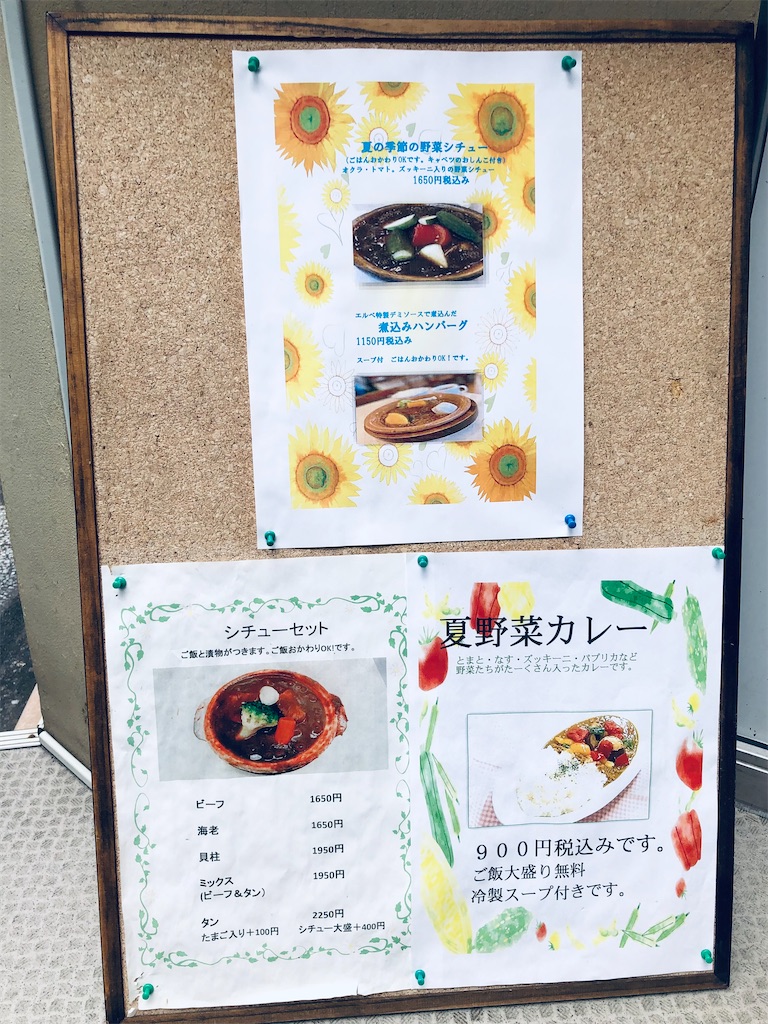 夏の季節の野菜シチュー
(ごはんおかわりOKです。キャベツのおしんこ付き)
オクラ・トマト。ズッキーニ入りの野菜シチュー
1650円税込み
エルベ特製デミソースで煮込んだ
煮込みハンバーグ
1150円税込み
スープ付 ごはんおかわりOK!です。
シチューセット
ご飯と漬物がつきます。ご飯おかわりOK!です。
ビーフ 1650円
海老 1650円
貝柱 1950円
ミックス 1950円
(ビーフ&タン)
タン 2250円
たまご入り+100円 シチュー大盛+400円
夏野菜カレー
とまと・なす・ズッキーニ・パプリカなど
野菜たちがたーくさん入ったカレーです。
900円税込みです。
ご飯大盛り無料
冷製スープ付きです。